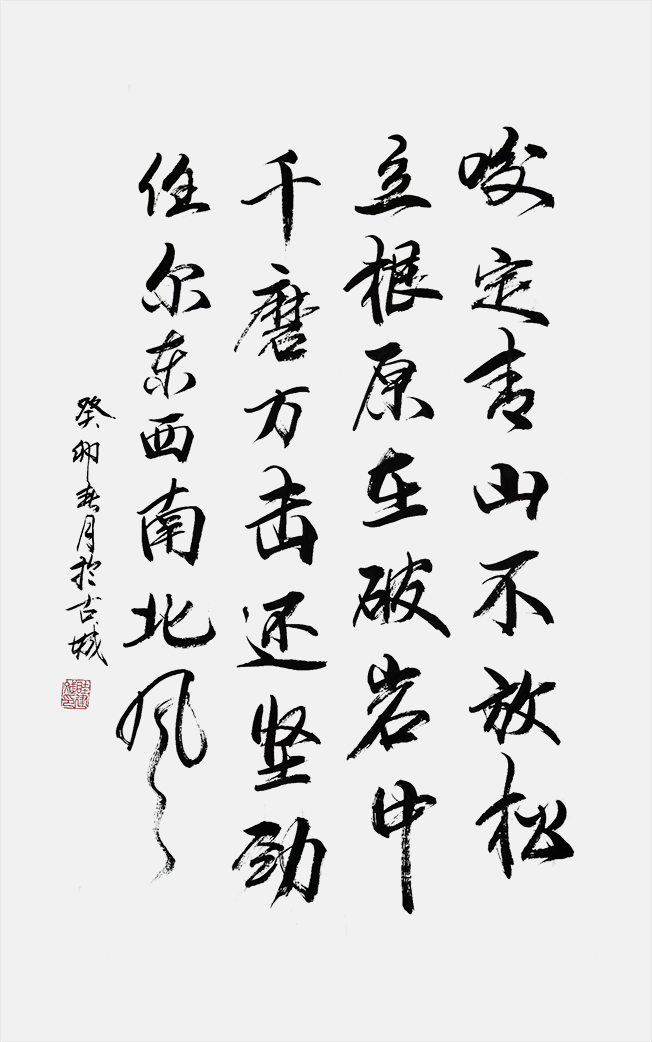 咬定青山不放松
立根原在破岩中
千磨万击还坚劲
任尔东西南北风
癸卯春月於古城